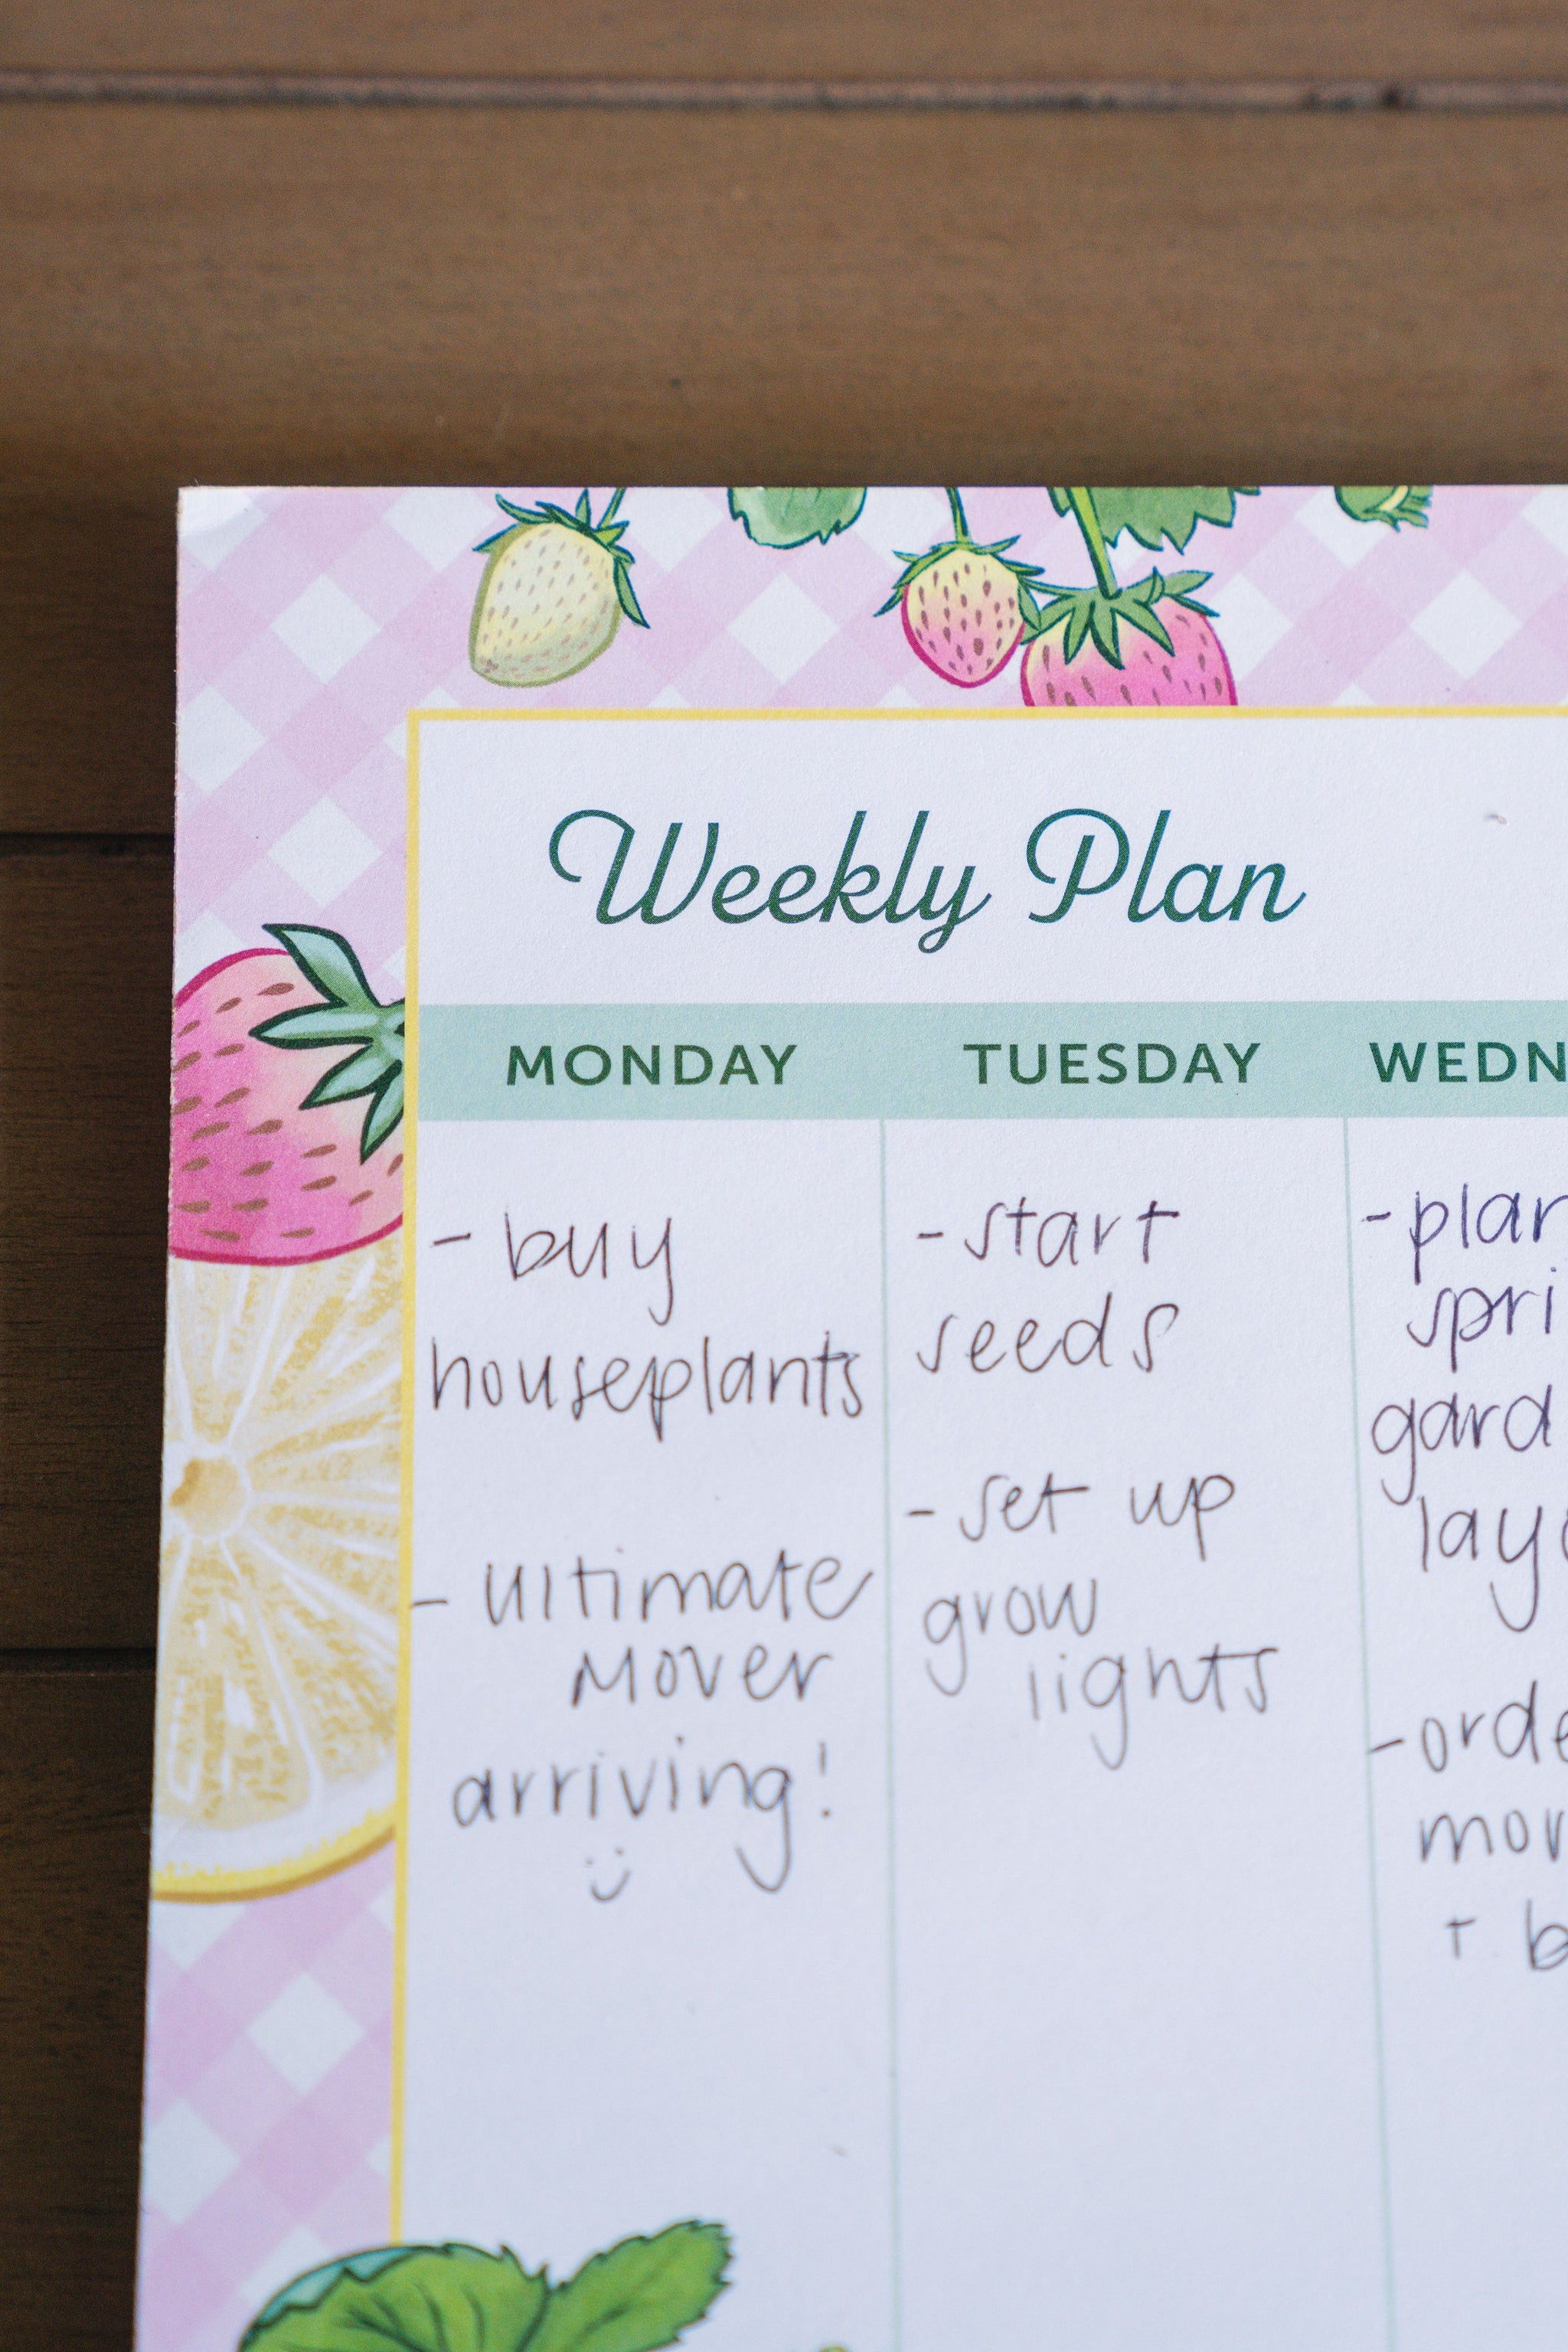 Weekly Plan
MONDAY TUESDAY WEDN
- buy
houseplants
- ultimate
mover
arriving!
- start
seeds
- set up
grow
lights
- plan
spri
gard
lay
- orde
mor
+ b